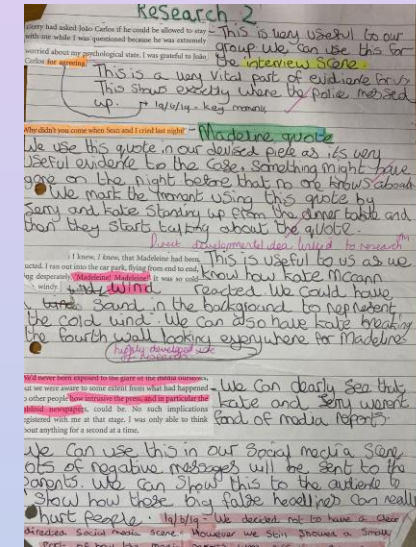 Research 2
Gerry had asked João Carlos if he could be allowed to stay
with me while I was questioned because he was extremely
worried about my psychological state. I was grateful to João
Carlos for agreeing.
- This is very useful to our
group we can use this for
the interview scene
This is a very vital part of evidence for us
This shows exactly where the police messed
up. → 19/10/19 - key moments
Why didn't you come when Sean and I cried last night - Madeline quote
We use this quote in our devised piece as its very
useful evidence to the case, something might have
gone on the night before that no one knows about
We mark the moment using this quote by
Gerry and Kate standing up from the dinner table and
then they start talking about the quote.
Direct developmental idea linked to research
I knew, I knew, that Madeleine had been
ucted. I ran out into the car park, flying from end to end,
ng desperately, 'Madeleine! Madeleine!' It was so cold
windy.
This is useful to us as we
know how Kate McCann
reacted. We could have
wind
Sound in the background to represent
the cold wind. We can also have Kate breaking
the fourth wall looking everywhere for Madeline
highly developed use
of research
We'd never been exposed to the glare of the media ourselves,
ut we were aware to some extent from what had happened
o other people how intrusive the press, and in particular the
tabloid newspapers, could be. No such implications
egistered with me at that stage. I was only able to think
bout anything for a second at a time.
- We can clearly see that
Kate and Gerry weren't
fond of media reports.
We can use this in our Social media scene
lots of negative messages will be sent to the
parents. We can show this to the audience to
show how these big false headlines can really
hurt people. 19/10/19 - We decided not to have a clear
directed Social media scene. However we still showed a small